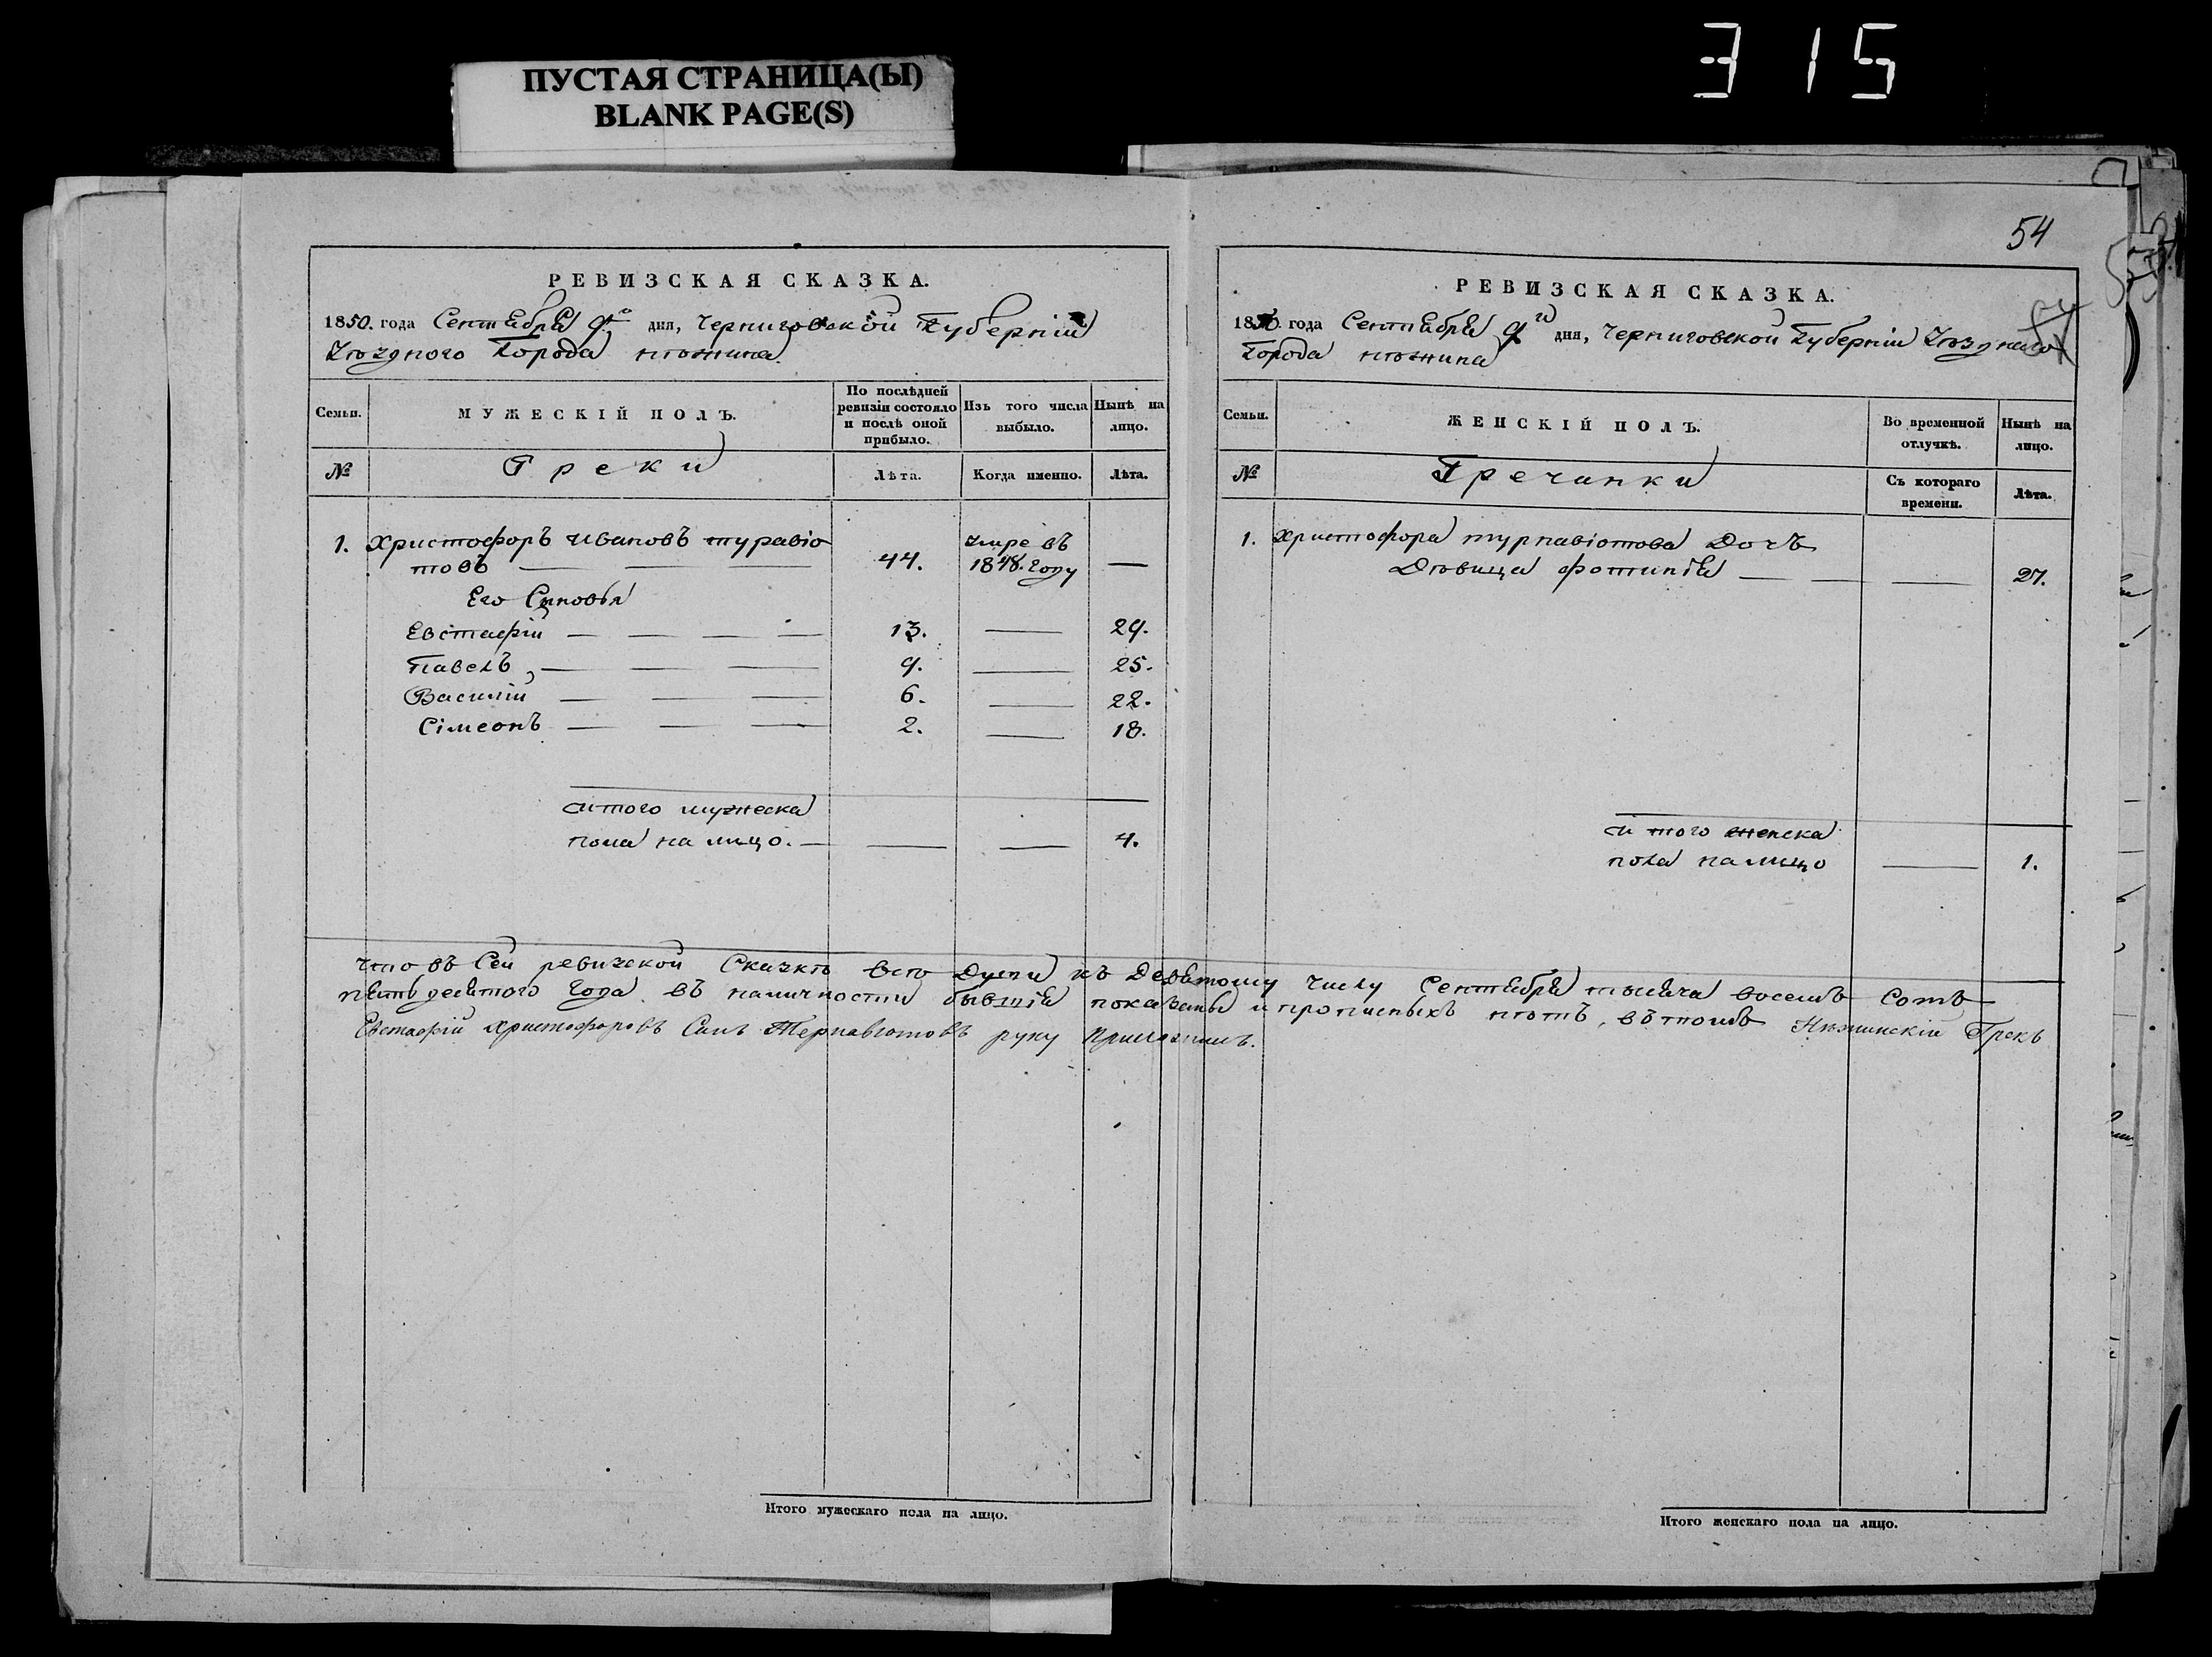 ПУСТАЯ СТРАНИЦА(Ы)
BLANK PAGE(S)
315
54
РЕВИЗСКАЯ СКАЗКА.
1850. года Сентября 9го дня, Черниговской Губернiи
Уѣзднаго Города Нѣжина
Семьи.
МУЖЕСКIЙ ПОЛЪ.
По послѣдней ревизiи состояло и послѣ оной прибыло.
Изъ того числа выбыло.
Нынѣ на лицо.
№
Греки
Лѣта.
Когда именно.
Лѣта.
1. Христофоръ Ивановъ туравiо
товъ — — 44. умре въ 1848. году —
Его Сыновья
Евстафiй — — — — 13. — 29.
Павелъ, — — — 9. — 25.
Василiй — — — 6. — 22.
Сiмеонъ — — — 2. — 18.
Итого мужеска
пола на лицо. — — — 4.
РЕВИЗСКАЯ СКАЗКА.
1850. года Сентября 9го дня, Черниговской Губернiи Уѣзднаго
Города Нѣжина
Семьи.
ЖЕНСКIЙ ПОЛЪ.
Во временной отлучкѣ.
Нынѣ на лицо.
№
Гречанки
Съ котораго времени.
Лѣта.
1. Христофора турнавiотова Дочъ
Дѣвица Фотинiя — — — 27.
Итого женска
пола на лицо — 1.
Что въ Сей ревизской Сказкѣ всѣ Души къ Девятому Числу Сентября тысяча восемъ Сотъ
пятьдесятого Года въ наличности бывшiя показаны и прописныхъ нѣтъ, въ томъ Нѣжинскiй Грекъ
Евстафiй Христофоровъ Сынъ Тернавiотовъ руку Приложилъ.
Итого мужескаго пола на лицо.
Итого женскаго пола на лицо.